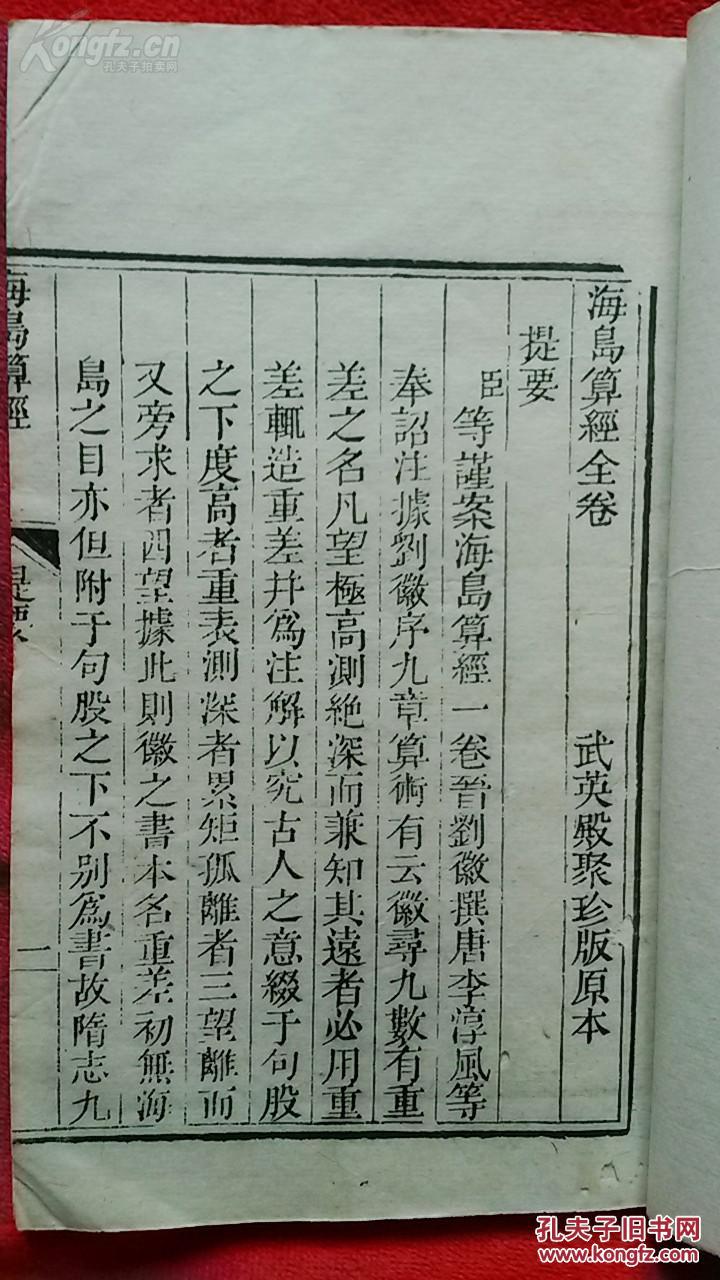 海島算經全卷
武英殿聚珍版原本
提要
臣等謹案海島算經一卷晉劉徽撰唐李淳風等
奉詔注據劉徽序九章算術有云徽尋九數有重
差之名凡望極高測絕深而兼知其遠者必用重
差輒造重差幷爲注解以究古人之意綴于句股
之下度高者重表測深者累矩孤離者三望離而
又旁求者四望據此則徽之書本名重差初無海
島之目亦但附于句股之下不别爲書故隋志九
海島算經
提要
一
Kongfz.cn
孔夫子拍卖网
孔夫子旧书网
www.kongfz.com